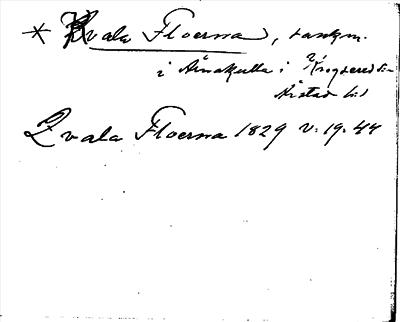 * Kvala Floerna, sankm.
i Årnakulla i Krogsered sn
Årstad hd
Qvala Floerna 1829 V: 19: 44